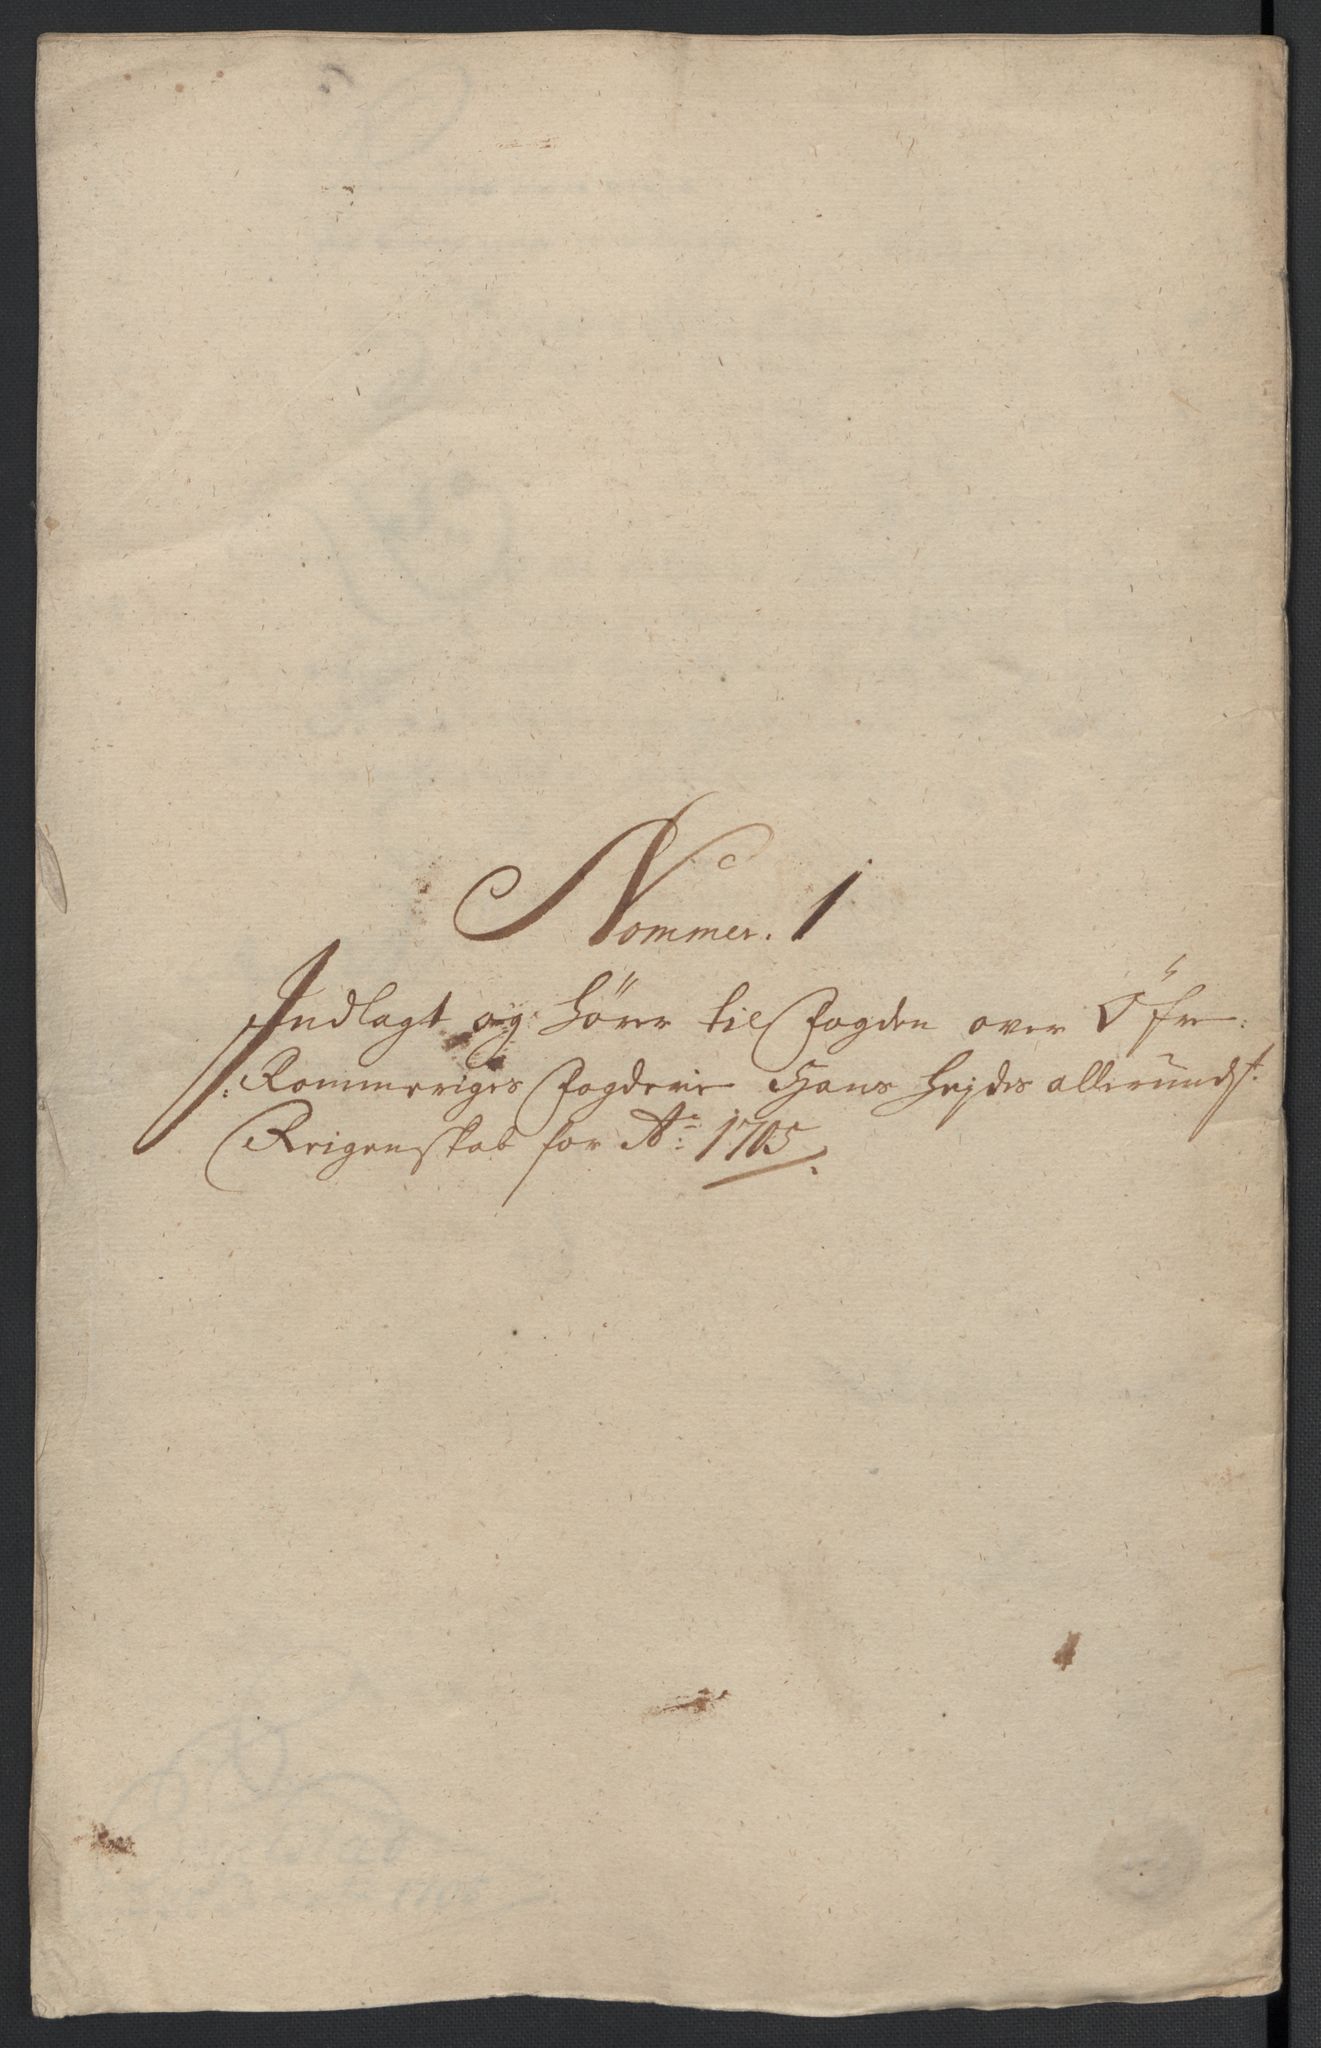 Nommer. 1
Indlagt og hører til Fogden over Öfre:
:Rommeriges Fogderie Hans Hejdes allerundst:
Reigenskab for Ao: 1705.